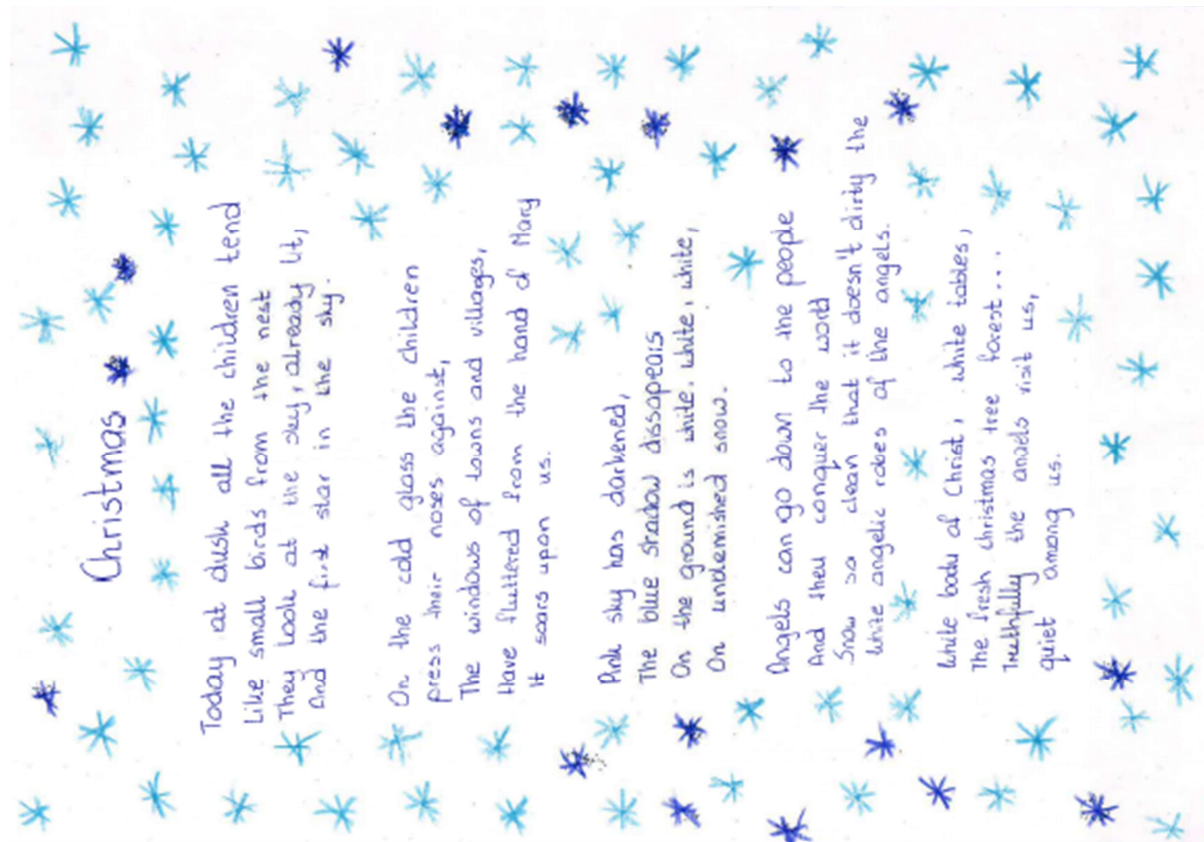 Christmas
Today at dusk all the children tend
Like small birds from the nest
They look at the sky, already lit,
And the first star in the sky.
On the cold glass the children
press their noses against,
The windows of towns and villages,
Have fluttered from the hand of Mary
It soars upon us.
Pink sky has darkened,
The blue shadow dissapears
On the ground is white, white, white,
On undemished snow.
Angels can go down to the people
And they conquer the world
Snow so clean that it doesn't dirty the
white angelic robes of the angels.
White body of Christ, white tables,
The fresh christmas tree forest...
Truthfully the angels visit us,
quiet among us.